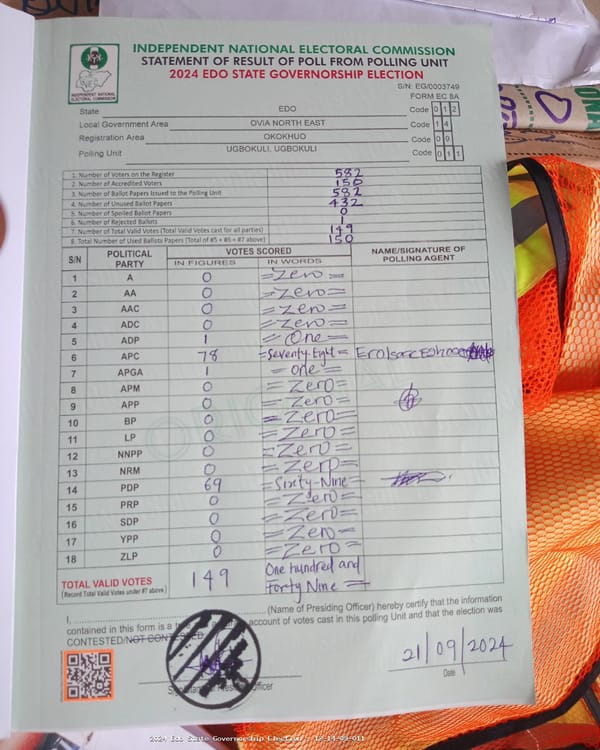 INDEPENDENT NATIONAL ELECTORAL COMMISSION
STATEMENT OF RESULT OF POLL FROM POLLING UNIT
2024 EDO STATE GOVERNORSHIP ELECTION
INDEPENDENT NATIONAL ELECTORAL COMMISSION
S/N: EG/0003749
FORM EC 8A
State EDO Code 0 1 2
Local Government Area OVIA NORTH EAST Code 1 4
Registration Area OKOKHUO Code 0 9
Polling Unit UGBOKULI, UGBOKULI Code 0 1 1
1. Number of Voters on the Register 582
2. Number of Accredited Voters 150
3. Number of Ballot Papers Issued to the Polling Unit 582
4. Number of Unused Ballot Papers 432
5. Number of Spoiled Ballot Papers 0
6. Number of Rejected Ballots 1
7. Number of Total Valid Votes (Total Valid Votes cast for all parties) 149
8. Total Number of Used Ballots Papers (Total of #5 + #6 + #7 above) 150
S/N POLITICAL PARTY VOTES SCORED NAME/SIGNATURE OF POLLING AGENT
IN FIGURES IN WORDS
1 A 0 =Zero=
2 AA 0 =Zero=
3 AAC 0 =Zero=
4 ADC 0 =Zero=
5 ADP 1 =One=
6 APC 78 =Seventy-Eight=
7 APGA 1 =one=
8 APM 0 =Zero=
9 APP 0 =Zero=
10 BP 0 =Zero=
11 LP 0 =Zero=
12 NNPP 0 =Zero=
13 NRM 0 =Zero=
14 PDP 69 =Sixty-Nine=
15 PRP 0 =Zero=
16 SDP 0 =Zero=
17 YPP 0 =Zero=
18 ZLP 0 =Zero=
TOTAL VALID VOTES 149 One hundred and Forty Nine =
(Record Total Valid Votes under #7 above)
I, (Name of Presiding Officer) hereby certify that the information
contained in this form is a account of votes cast in this polling Unit and that the election was
CONTESTED/NOT CONTESTED
21/09/2024
Officer Date
2024 Edo State Governorship Election - 12-14-09-011